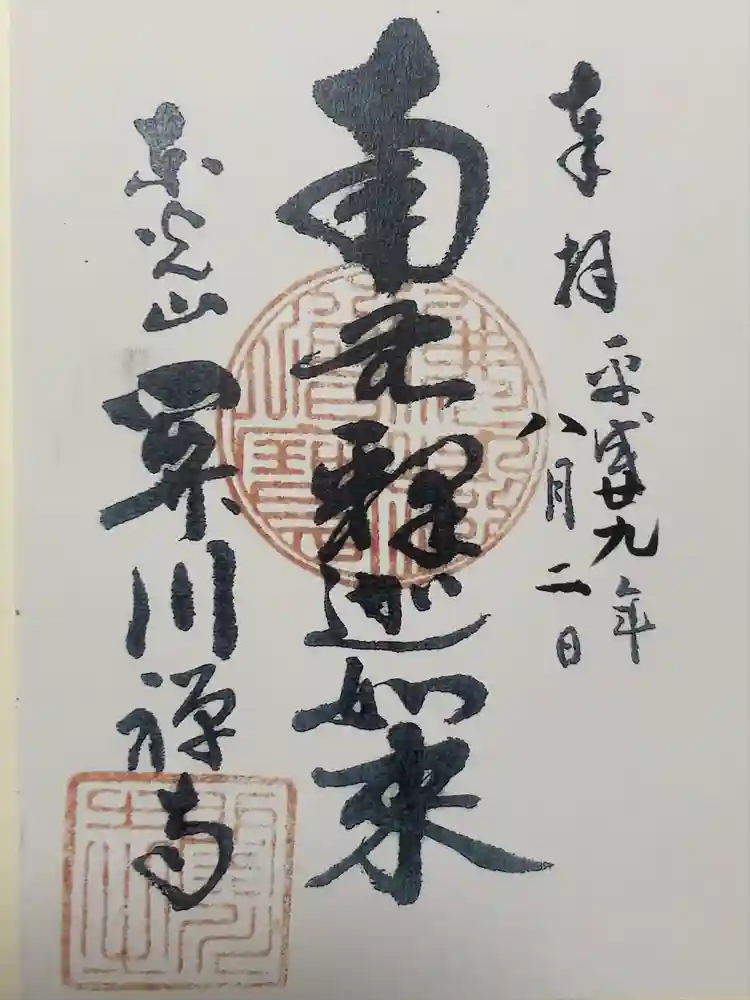 奉拝
平成廿九年
八月二日
南无釋迦如来
東光山
関川禅寺